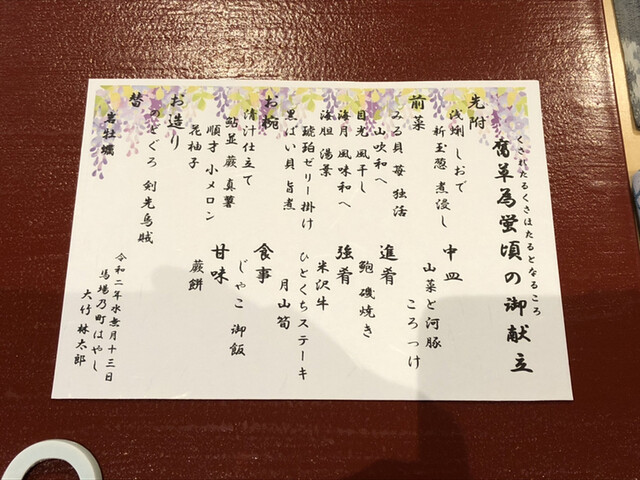 くされたるくさほたるとなるころ
腐草為蛍頃の御献立
先附
浅蜊 しおで
新玉葱 煮浸し
前菜
みる貝 苺 独活
山吹和へ
目光 風干し
海月 風味和へ
海胆 湯葉
琥珀ゼリー掛け
黒ばい貝 旨煮
お椀
清汁仕立て
鮎並 蕨 真薯
順才 小メロン
花柚子
お造り
のどぐろ 剣先烏賊
替
岩牡蠣
中皿
山菜と河豚
ころっけ
進肴
鮑 磯焼き
強肴
米沢牛
ひとくちステーキ
月山筍
食事
じゃこ 御飯
甘味
蕨餅
令和二年水無月十三日
馬場乃町はやし
大竹 林太郎